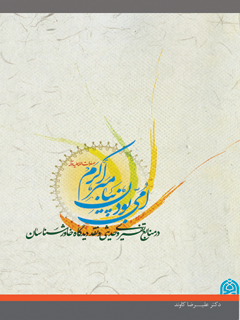 امّی بودن پیامبر اکرم
در منابع تفسیری و حدیثی و نقد دیدگاه خاورشناسان
دکتر علیرضا کاوند